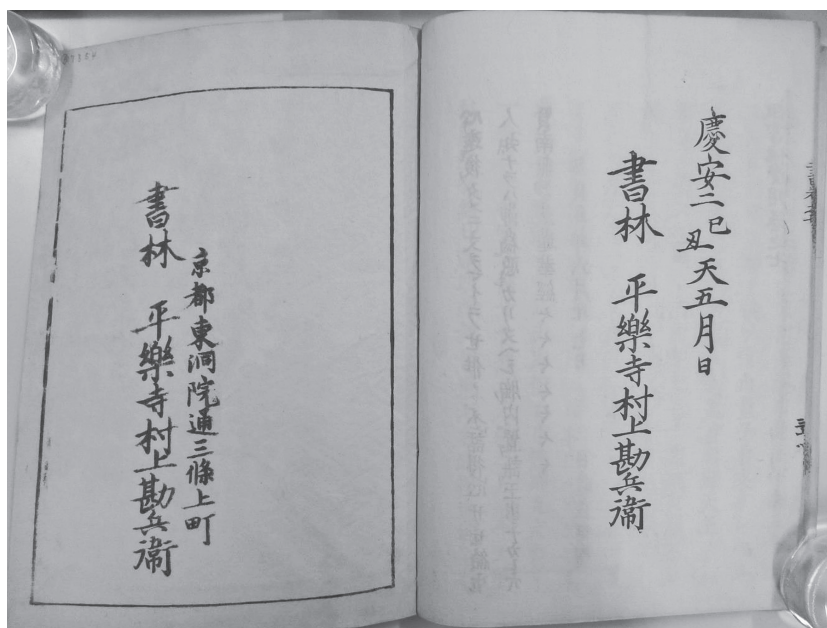 慶安二己丑天五月日
書林　平樂寺村上勘兵衛
京都東洞院通三條上町
書林　平樂寺村上勘兵衛